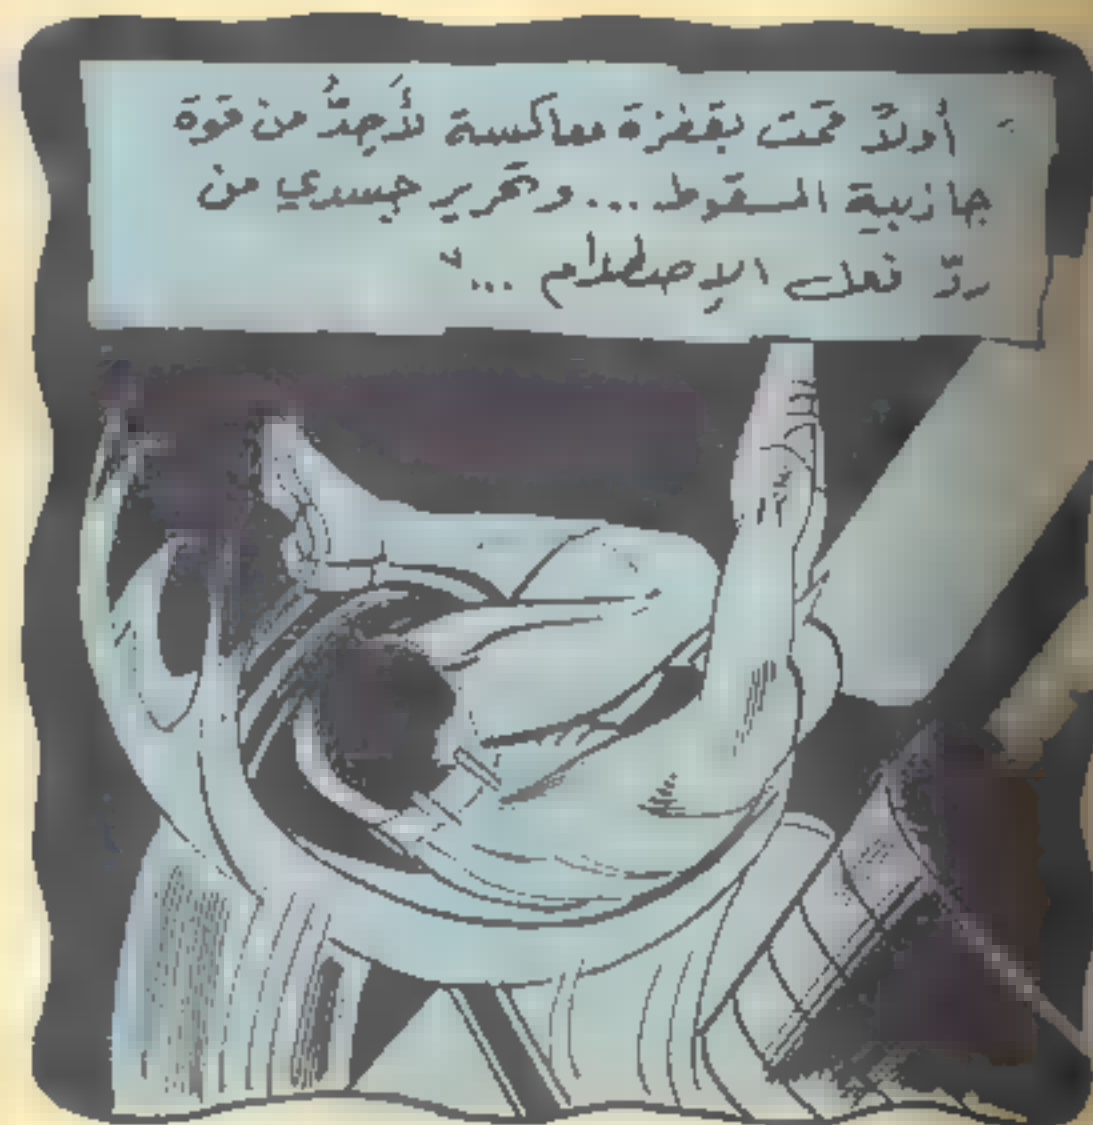 أولاً قمت بقفزة معاكسة لأَحِدُّ من قوة
جاذبية السقوط... وتحرير جسدي من
ردّ فعل الإصطدام..."